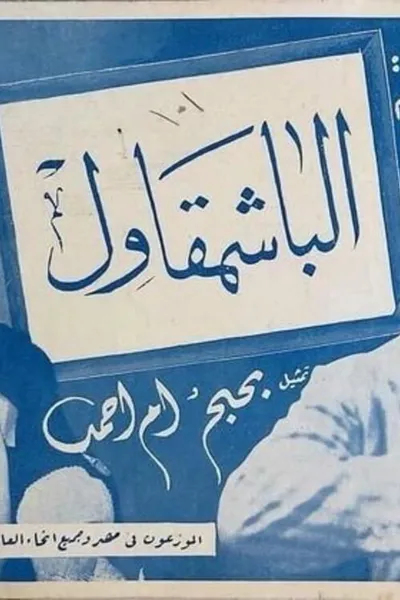 ١٠١
الباشمقاول
تمثيل بحبح و ام احمد
الموزعون فى مصر وجميع انحاء العا